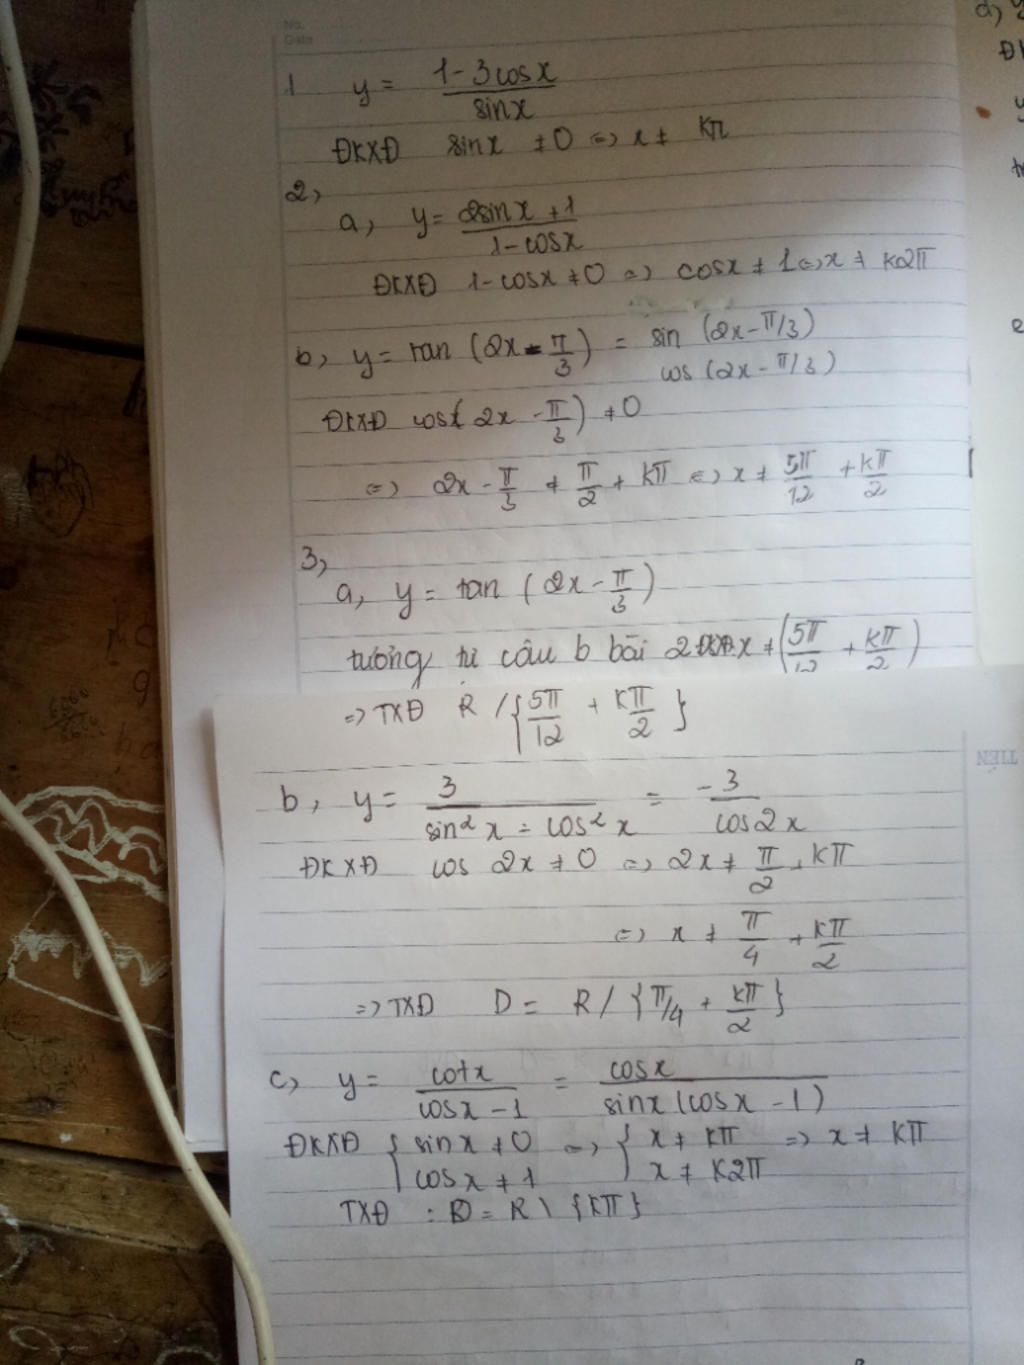 No.
Date
1 y = (1 - 3cosx)/(sinx)
ĐKXĐ sinx ≠ 0 <=> x ≠ kπ
2,
a, y = (2sinx + 1)/(1 - cosx)
ĐKXĐ 1 - cosx ≠ 0 <=> cosx ≠ 1 <=> x ≠ k2π
b, y = tan (2x - π/3) = sin (2x - π/3)/cos (2x - π/3)
ĐKXĐ cos( 2x - π/3) ≠ 0
<=> 2x - π/3 ≠ π/2 + kπ <=> x ≠ 5π/12 + kπ/2
3,
a, y = tan (2x - π/3)
tương tự câu b bài 2 ĐKXĐ. x ≠ (5π/12 + kπ/2)
=> TXĐ R / {5π/12 + kπ/2}
TIÊN
b, y = 3/(sin²x - cos²x) = -3/(cos2x)
ĐKXĐ cos 2x ≠ 0 <=> 2x ≠ π/2 + kπ
<=> x ≠ π/4 + kπ/2
=> TXĐ D = R / {π/4 + kπ/2}
c, y = cotx/(cosx - 1) = cosx/(sinx (cosx - 1))
ĐKXĐ { sinx ≠ 0 <=> { x ≠ kπ => x ≠ kπ
cosx ≠ 1 x ≠ k2π
TXĐ : D = R \ {kπ}